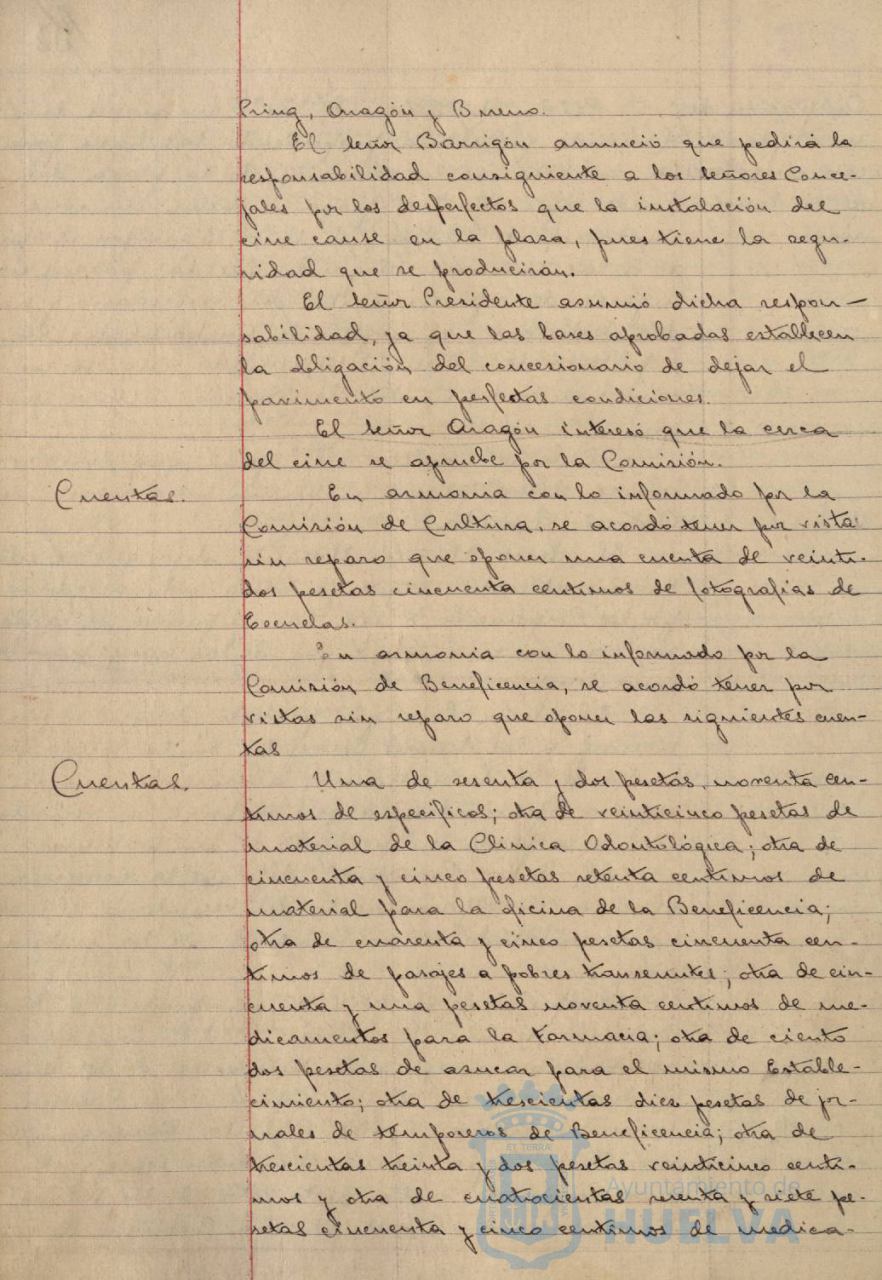 Pring, Aragón y Bueno.
El señor Barrigón anunció que pedirá la
responsabilidad consiguiente a los señores Conce-
jales por los desperfectos que la instalación del
cine cause en la plaza, pues tiene la segu-
ridad que se producirán.
El señor Presidente asumió dicha respon-
sabilidad, ya que las bases aprobadas establecen
la obligación del concesionario de dejar el
pavimento en perfectas condiciones.
El señor Aragón interesó que la cerca
del cine se apruebe por la Comisión.
Cuentas.
En armonia con lo informado por la
Comisión de Cultura, se acordó tener por vista
sin reparo que oponer una cuenta de veinti-
dos pesetas cincuenta centimos de fotografias de
Escuelas.
En armonia con lo informado por la
Comisión de Beneficencia, se acordó tener por
vistas sin reparo que oponer las siguientes cuen-
tas
Cuentas.
Una de sesenta y dos pesetas, noventa cen-
timos de específicos; otra de veinticinco pesetas de
material de la Clinica Odontológica; otra de
cincuenta y cinco pesetas setenta centimos de
material para la oficina de la Beneficencia;
otra de cuarenta y cinco pesetas cincuenta cen-
timos de pasajes a pobres transeuntes; otra de cin-
cuenta y una pesetas noventa centimos de me-
dicamentos para la Farmacia; otra de ciento
dos pesetas de azucar para el mismo Estable-
cimiento; otra de trescientas diez pesetas de jor-
nales de temporeros de Beneficencia; otra de
trescientas treinta y dos pesetas veinticinco centi-
mos y otra de cuatrocientas y siete pe-
setas cincuenta y cinco centimos de medica-
Ayuntamiento de
HUELVA